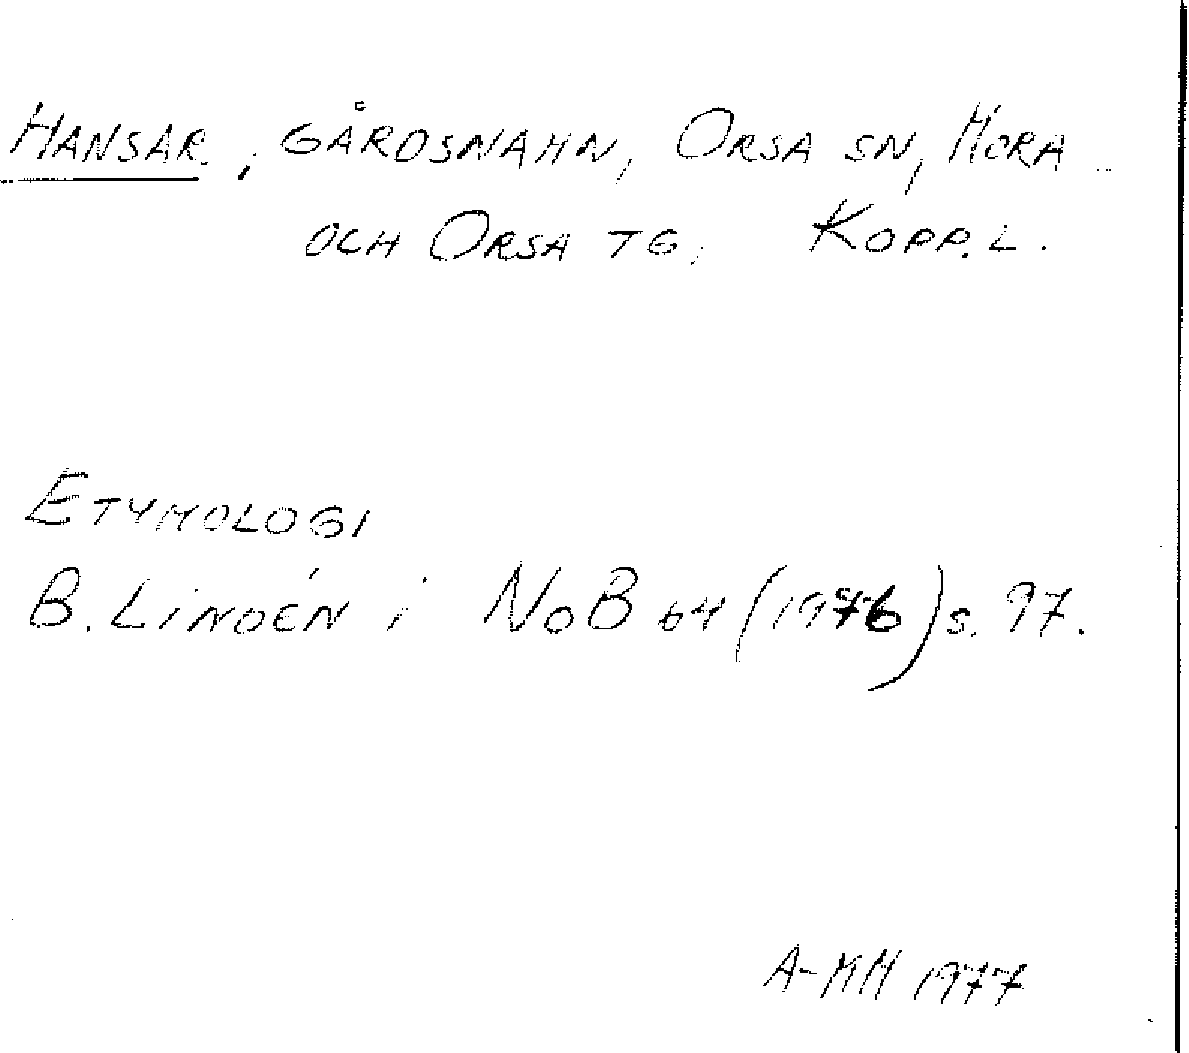 HANSAR, GÅRDSNAMN, ORSA SN, MORA
OCH ORSA TG, KOPP. L.
ETYMOLOGI
B. LINDÉN i NoB 64 (1976) s. 97.
A-MM 1977